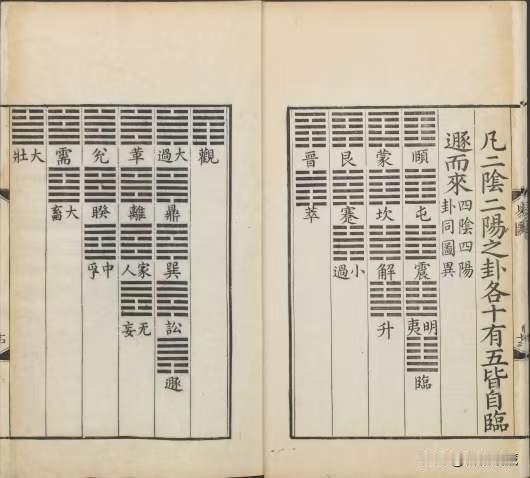 凡二陰二陽之卦各十有五皆自臨
遯而來
四陰四陽
卦同圖異
頤 屯 震 明夷 臨
蒙 坎 解 升
艮 蹇 小過
晉 萃
觀
大過 鼎 巽 訟 遯
革 離 家人 无妄
兌 睽 中孚
需 大畜
大壯